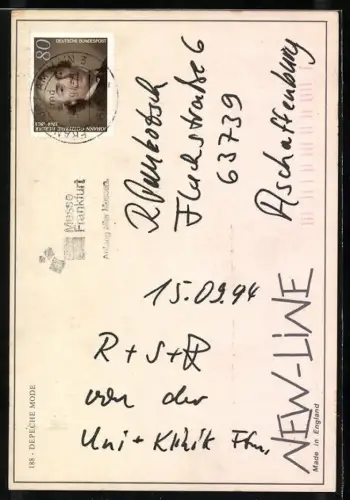 80
DEUTSCHE BUNDESPOST
JOHANN GOTTFRIED HERDER
1744-1803
Messe
Frankfurt
Flachstraße 6
63739
Aschaffenburg
15.09.94
R + S +
von der
Uni + Klinik Ffm.
NEW-LINE
Made in England
188 · DEPECHE MODE